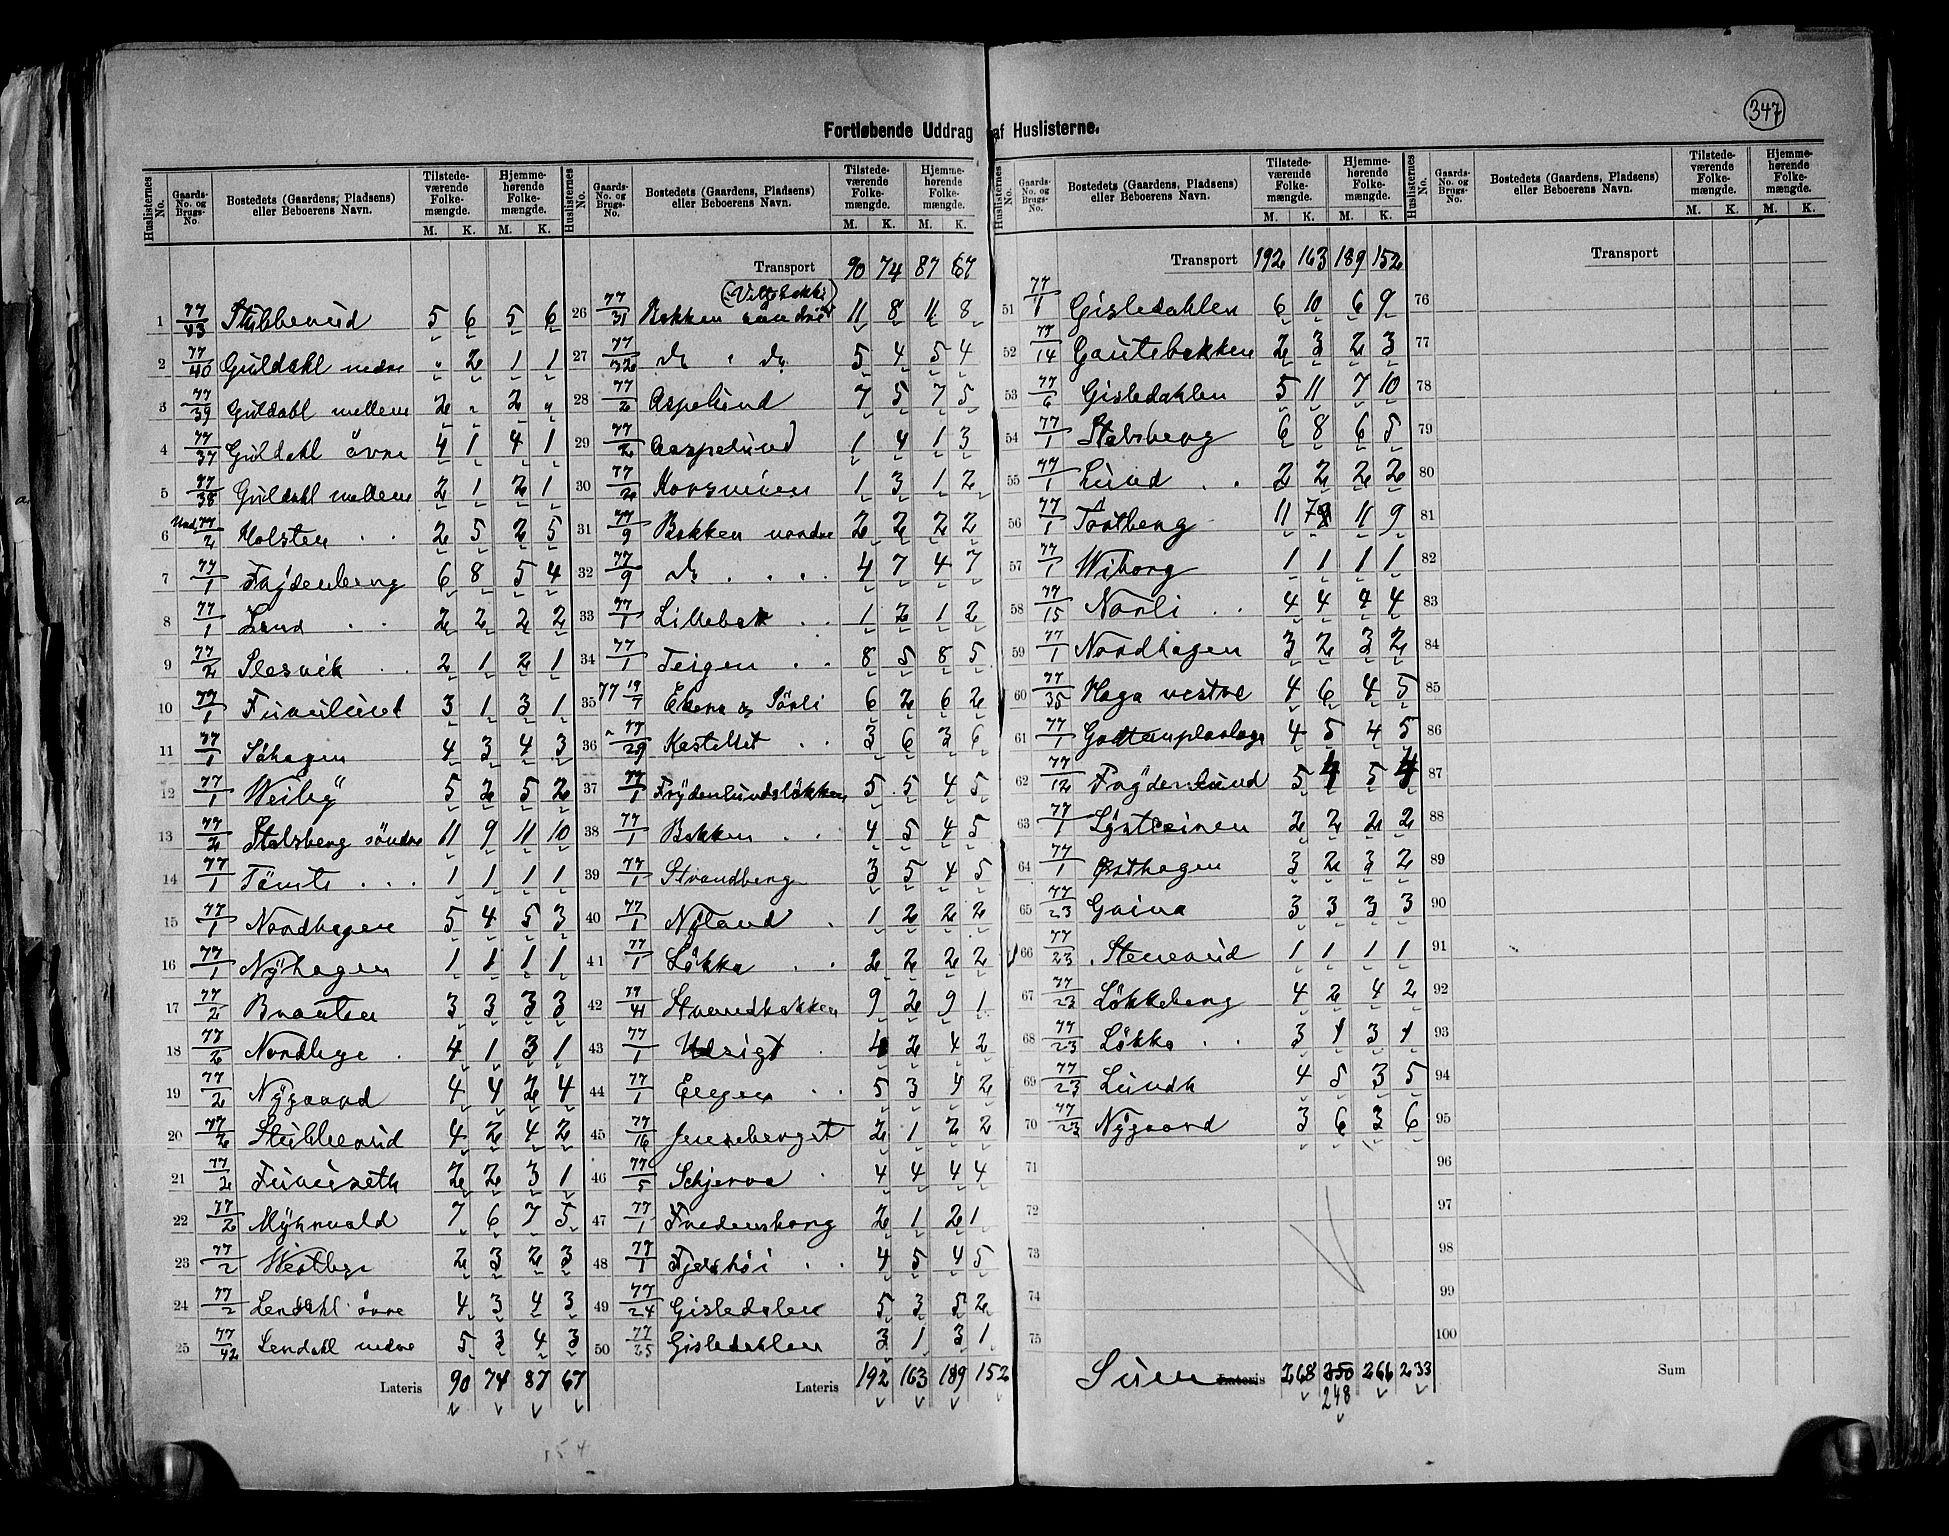 347
Fortløbende Uddrag af Huslisterne.
Huslisternes No. Gaards-No. og Brugs-No. Bostedets (Gaardens, Pladsens) eller Beboerens Navn. Tilstedeværende Folkemængde. M. K. Hjemmehørende Folkemængde. M. K.
1 77/43 Stubberud 5 6 5 6
2 77/40 Guldahl nedre " 2 1 1
3 77/39 Guldahl mellem 2 " 2 "
4 77/37 Guldahl øvre 4 1 4 1
5 77/38 Guldahl mellem 2 1 2 1
6 Und. 77/2 Holsten . . 2 5 2 5
7 77/1 Frÿdenberg 6 8 5 4
8 77/1 Lund . . 2 2 2 2
9 77/2 Slesvik . . 2 1 2 1
10 77/1 Furulund 3 1 3 1
11 77/1 Söhagen 4 3 4 3
12 77/1 Weibÿ 5 2 5 2
13 77/2 Stalsberg söndre 11 9 11 10
14 77/1 Tömte . . . 1 1 1 1
15 77/1 Nordhagen 5 4 5 3
16 77/1 Nÿhagen 1 1 1 1
17 77/2 Braaten 3 3 3 3
18 77/2 Nordbye . 4 1 3 1
19 77/2 Nÿgaard 4 4 2 4
20 77/2 Stubberud 4 2 4 2
21 77/2 Furuseth 2 2 3 1
22 77/2 Mÿhrvold 7 6 7 5
23 77/2 Westbye 2 3 2 3
24 77/2 Lendahl øvre 4 3 4 3
25 77/42 Lendahl nedre 5 3 4 3
Lateris 90 74 87 67
154
Huslisternes No. Gaards-No. og Brugs-No. Bostedets (Gaardens, Pladsens) eller Beboerens Navn. Tilstedeværende Folkemængde. M. K. Hjemmehørende Folkemængde. M. K.
Transport 90 74 87 67
26 77/31 Bakken söndre 11 8 11 8
27 77/32 do " do 5 4 5 4
28 77/2 Aspelund 7 5 7 5
29 77/2 Aaspelund 1 4 1 3
30 77/2 Korsveien 1 3 1 2
31 77/9 Bakken nordre 2 2 2 2
32 77/9 do . . . 4 7 4 7
33 77/1 Lillebæk . . 1 2 1 2
34 77/1 Teigen . . 8 5 8 5
35 77 19/7 Ekern og Sörli 6 2 6 2
36 77/29 Kastellet . . 3 6 3 6
37 77/1 Frÿdenlundsløkken 5 5 4 5
38 77/1 Bakken . . 4 5 4 5
39 77/1 Strandberg 3 5 4 5
40 77/1 Nÿland . 1 2 2 2
41 77/1 Løkka . . 2 2 2 2
42 77/41 Strandbakken 9 2 9 1
43 77/1 Udsigt . 4 2 4 2
44 77/1 Engen . . 5 3 4 2
45 77/16 Jenseberget 2 1 2 2
46 77/5 Schjerva . 4 4 4 4
47 77/1 Fredensborg 2 1 2 1
48 77/1 Fjeldhöi . . 4 5 4 5
49 77/24 Gisledalen 5 3 5 2
50 77/25 Gisledahlen 3 1 3 1
Lateris 192 163 189 152
Huslisternes No. Gaards-No. og Brugs-No. Bostedets (Gaardens, Pladsens) eller Beboerens Navn. Tilstedeværende Folkemængde. M. K. Hjemmehørende Folkemængde. M. K.
Transport 192 163 189 152
51 77/1 Gisledahlen 6 10 6 9
52 77/14 Gautebakken 2 3 2 3
53 77/6 Gisledahlen 5 11 7 10
54 77/1 Stalsberg 6 8 6 5
55 77/1 Lund . . 2 2 2 2
56 77/1 Tortberg 11 7 11 9
57 77/1 Wiborg 1 1 1 1
58 77/15 Norli . . 4 4 4 4
59 77/1 Nordhagen 3 2 3 2
60 77/35 Haga vestre 4 6 4 5
61 77/1 4 5 4 5
62 77/12 Frÿdenlund 5 4 5 4
63 77/1 2 2 2 2
64 77/1 Østhagen 3 2 3 2
65 77/23 Grina 3 3 3 3
66 77/23 Stenerud 1 1 1 1
67 77/23 Løkkeberg 4 2 4 2
68 77/23 Løkka . . 3 1 3 1
69 77/23 Lundh 4 5 3 5
70 77/23 Nÿgaard 3 6 3 6
71
72
73
74
75
Sum Lateris 268 250 266 233
248
Huslisternes No. Gaards-No. og Brugs-No. Bostedets (Gaardens, Pladsens) eller Beboerens Navn. Tilstedeværende Folkemængde. M. K. Hjemmehørende Folkemængde. M. K.
Transport
76
77
78
79
80
81
82
83
84
85
86
87
88
89
90
91
92
93
94
95
96
97
98
99
100
Sum